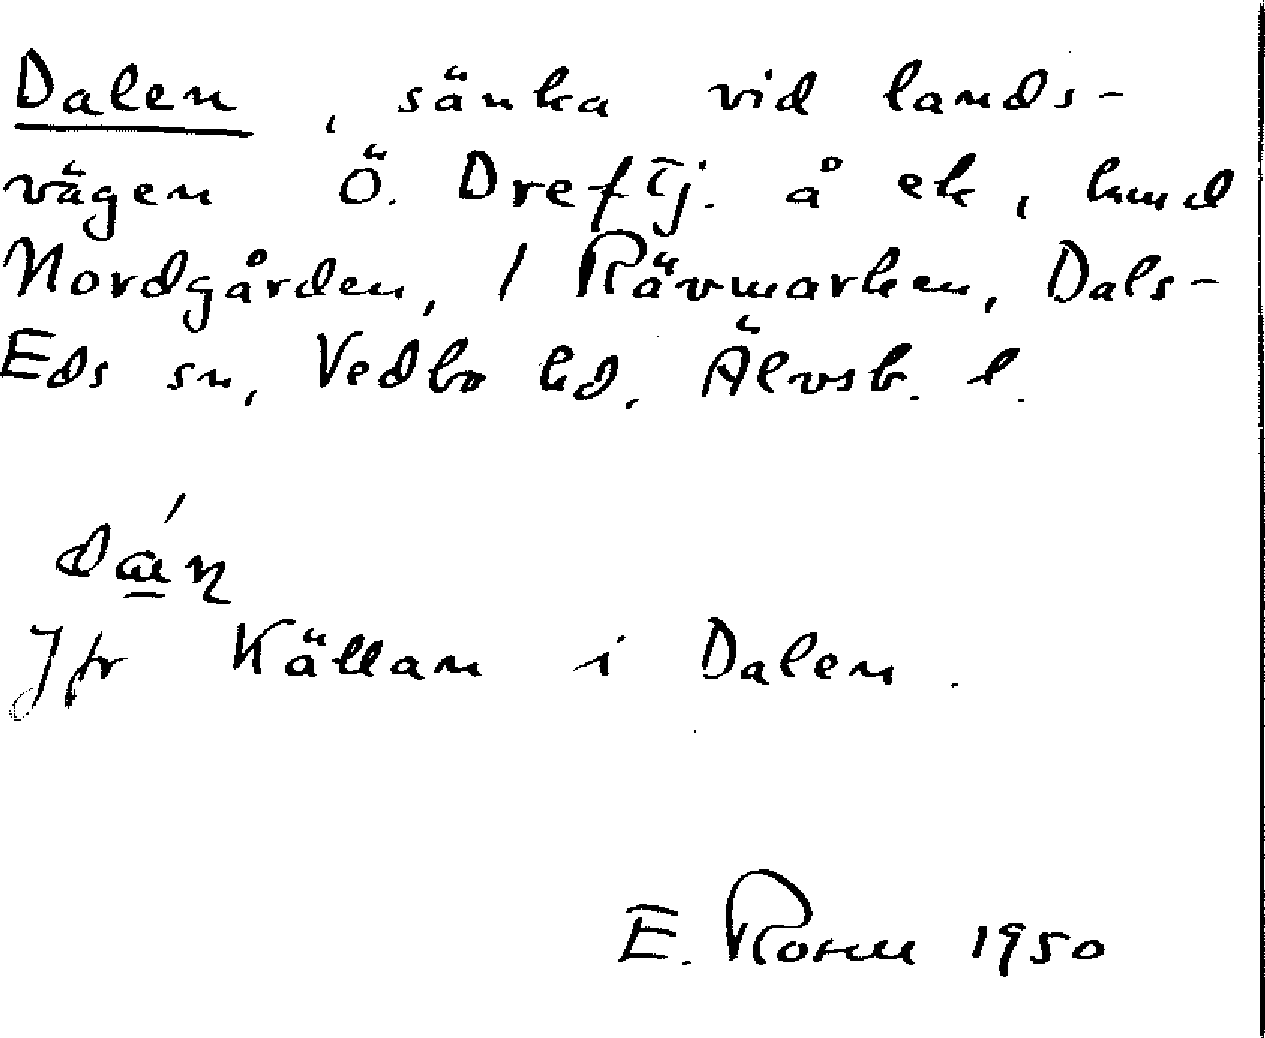 Dalen, sänka vid lands-
vägen Ö. Dreftj. å ek, hmd
Nordgården, 1 Rävmarken, Dals-
Eds sn, Vedbo hd, Älvsb. l.
Jfr Källan i Dalen.
E. Rosell 1950